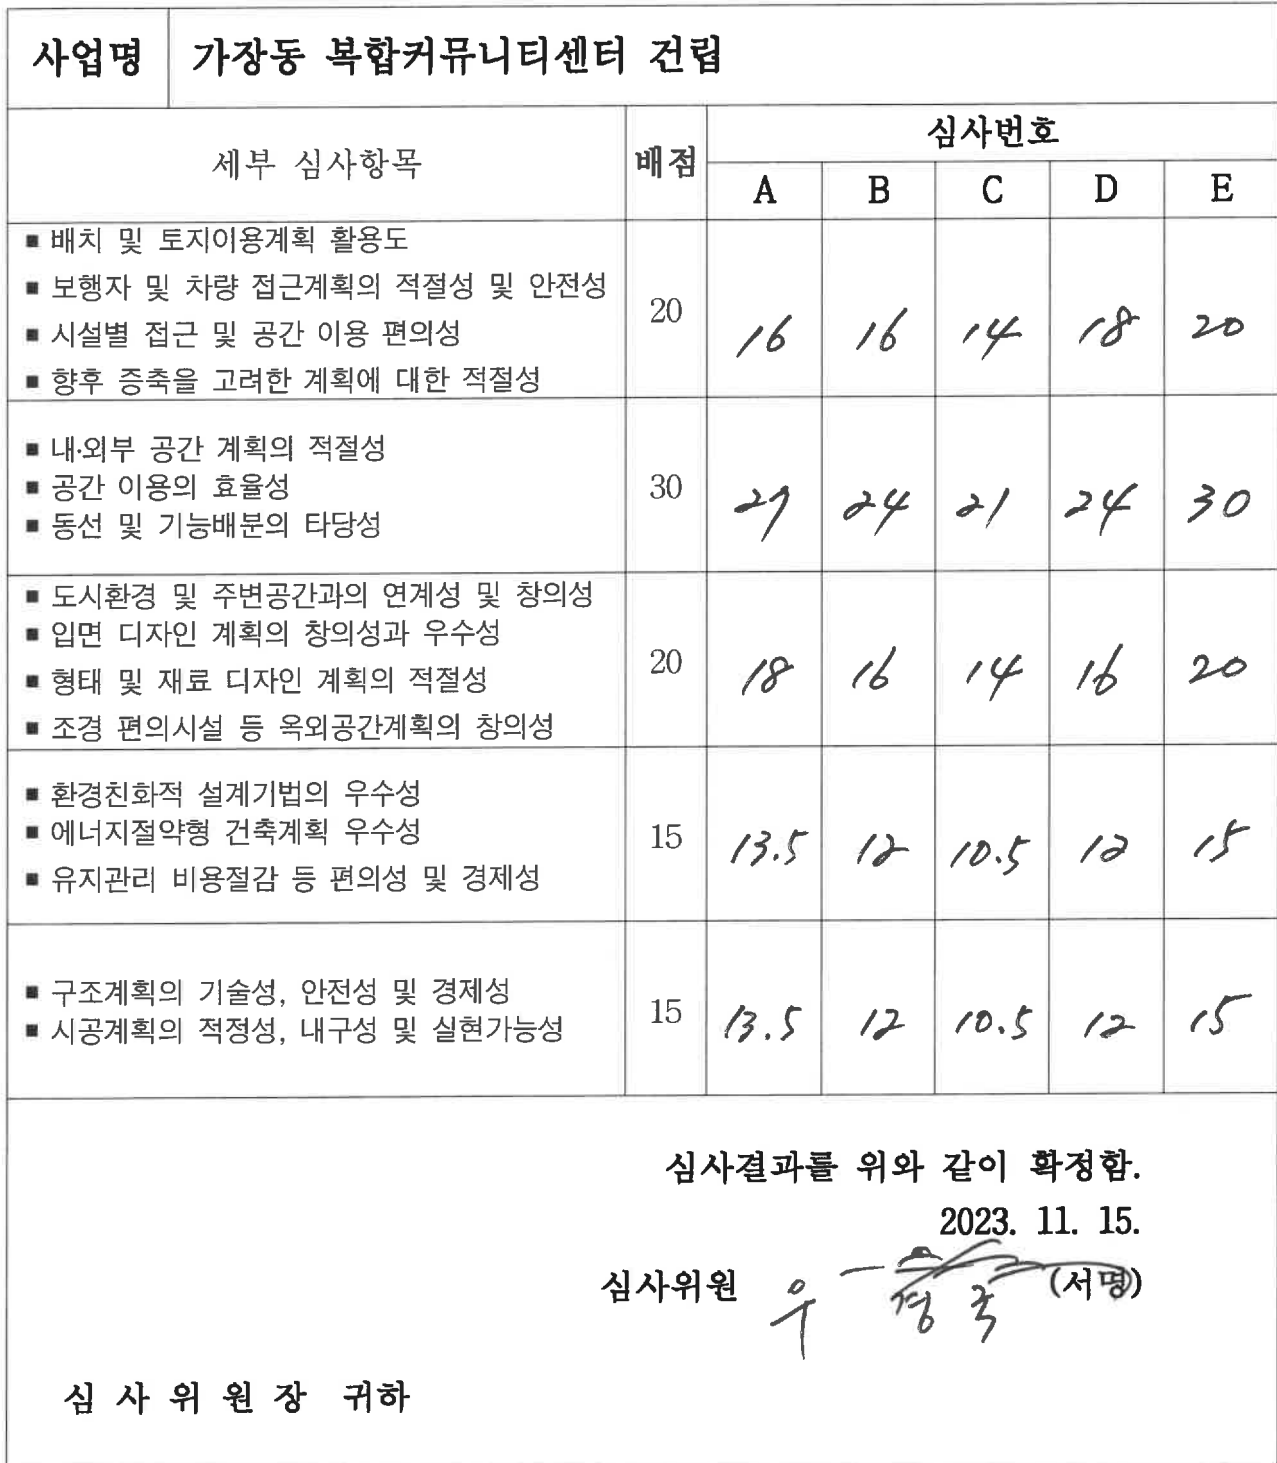 사업명 가장동 복합커뮤니티센터 건립
세부 심사항목 배점 심사번호
A B C D E
■ 배치 및 토지이용계획 활용도
■ 보행자 및 차량 접근계획의 적절성 및 안전성
■ 시설별 접근 및 공간 이용 편의성
■ 향후 증축을 고려한 계획에 대한 적절성
20 16 16 14 18 20
■ 내·외부 공간 계획의 적절성
■ 공간 이용의 효율성
■ 동선 및 기능배분의 타당성
30 27 24 21 24 30
■ 도시환경 및 주변공간과의 연계성 및 창의성
■ 입면 디자인 계획의 창의성과 우수성
■ 형태 및 재료 디자인 계획의 적절성
■ 조경 편의시설 등 옥외공간계획의 창의성
20 18 16 14 16 20
■ 환경친화적 설계기법의 우수성
■ 에너지절약형 건축계획 우수성
■ 유지관리 비용절감 등 편의성 및 경제성
15 13.5 12 10.5 12 15
■ 구조계획의 기술성, 안전성 및 경제성
■ 시공계획의 적정성, 내구성 및 실현가능성
15 13.5 12 10.5 12 15
심사결과를 위와 같이 확정함.
2023. 11. 15.
심사위원 우 정 국 (서명)
심 사 위 원 장 귀하